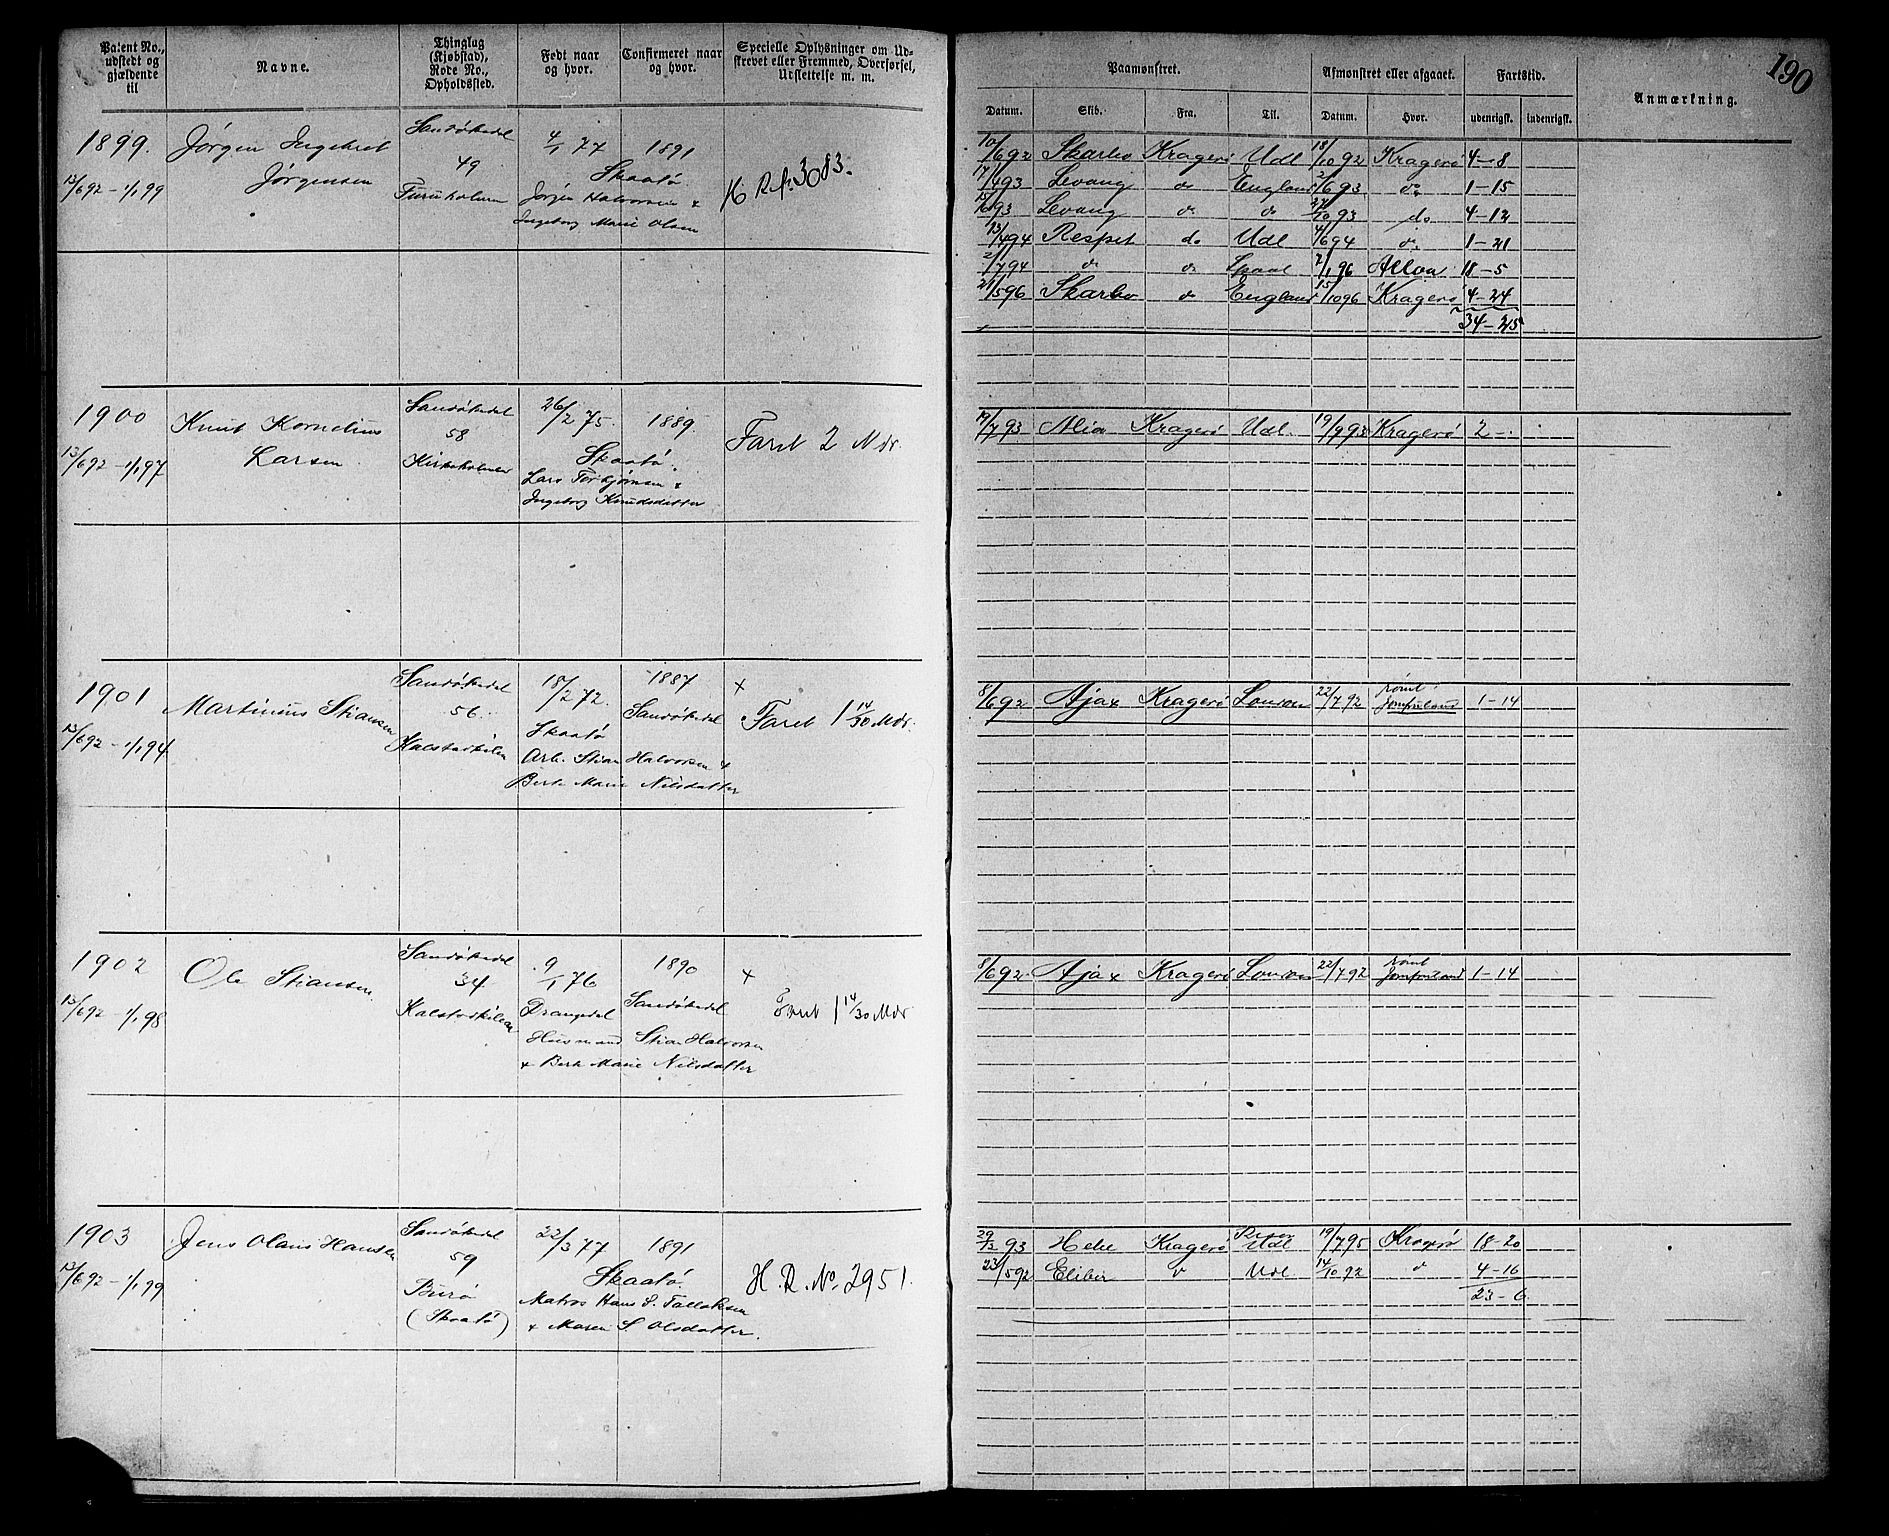 Patent No., udstedt og gjældende til
Navne.
Thinglag (Kjøbstad), Rode No., Opholdssted.
Født naar og hvor.
Confirmeret naar og hvor.
Specielle Oplysninger om Udskrevet eller Fremmed, Overførsel, Udslettelse m. m.
Paamønstret.
Afmønstret eller afgaaet.
Fartstid.
Anmærkning.
190
Datum.
Skib.
Fra.
Til.
Datum.
Hvor.
udenrigsk.
indenrigsk.
1899.
13/6 92 - 1/1 99
Jørgen Ingebret
Jørgensen
Sandøkedal
49
Furuholmen
4/1 77
1891
Skaatø.
Jørgen Halvorsen &
Ingeborg Marie Olsen
H R. No 3083.
10/6 92 Skarbo Kragerø Udl 18/10 92 Kragerø 4-8
17/4 93 Levang do England 2/6 93 do 1-15
15/6 93 Levang do do 27/10 93 do 4-12
13/4 94 Respit do Udl 4/6 94 do 1-21
2/7 94 do do 7/1 96 Alloa 18-5
21/5 96 Skarbo do England 15/10 96 Kragerø 4-24
34-25
1900
13/6 92 - 1/1 97
Knut Kornelius
Larsen
Sandøkedal
58
Kirkeholmen
26/2 75.
1889
Skaatø.
Lars Torbjørnsen &
Ingeborg Knudsdatter
Faret 2 Mdr.
19/7 93 Alia Kragerø Udl. 19/9 93 Kragerø 2 -
1901
13/6 92 - 1/1 94
Martinius Stiansen
Sandøkedal
56.
Kalstadkilen
18/2 72.
Skaatø
1887
Sandøkedal
Arb. Stian Halvorsen &
Berte Marie Nilsdatter
+
Faret 1 14/30 Mdr.
8/6 92 Ajax Kragerø London 22/7 92 rømt Jomfruland 1-14
1902
13/6 92 - 1/1 98
Ole Stiansen
Sandøkedal
34
Kalstadkilen
9/1 76
Drangedal
1890
Sandøkedal
Husmand Stian Halvorsen
& Berte Marie Nilsdatter
+
Faret 1 14/30 Mdr
8/6 92 Ajax Kragerø London 22/7 92 rømt Jomfruland 1-14
1903
13/6 92 - 1/1 99
Jens Olaus Hansen
Sandøkedal
59
Burø
(Skaatø)
22/3 77
1891
Skaatø.
Matros Hans S. Tallaksen
& Maren S. Olsdatter.
H. R. No. 2951.
29/3 93 Hebe Kragerø Udl 19/7 95 Kragerø 18-20
23/5 92 Elibir do Udl 14/10 92 do 4-16
23-6